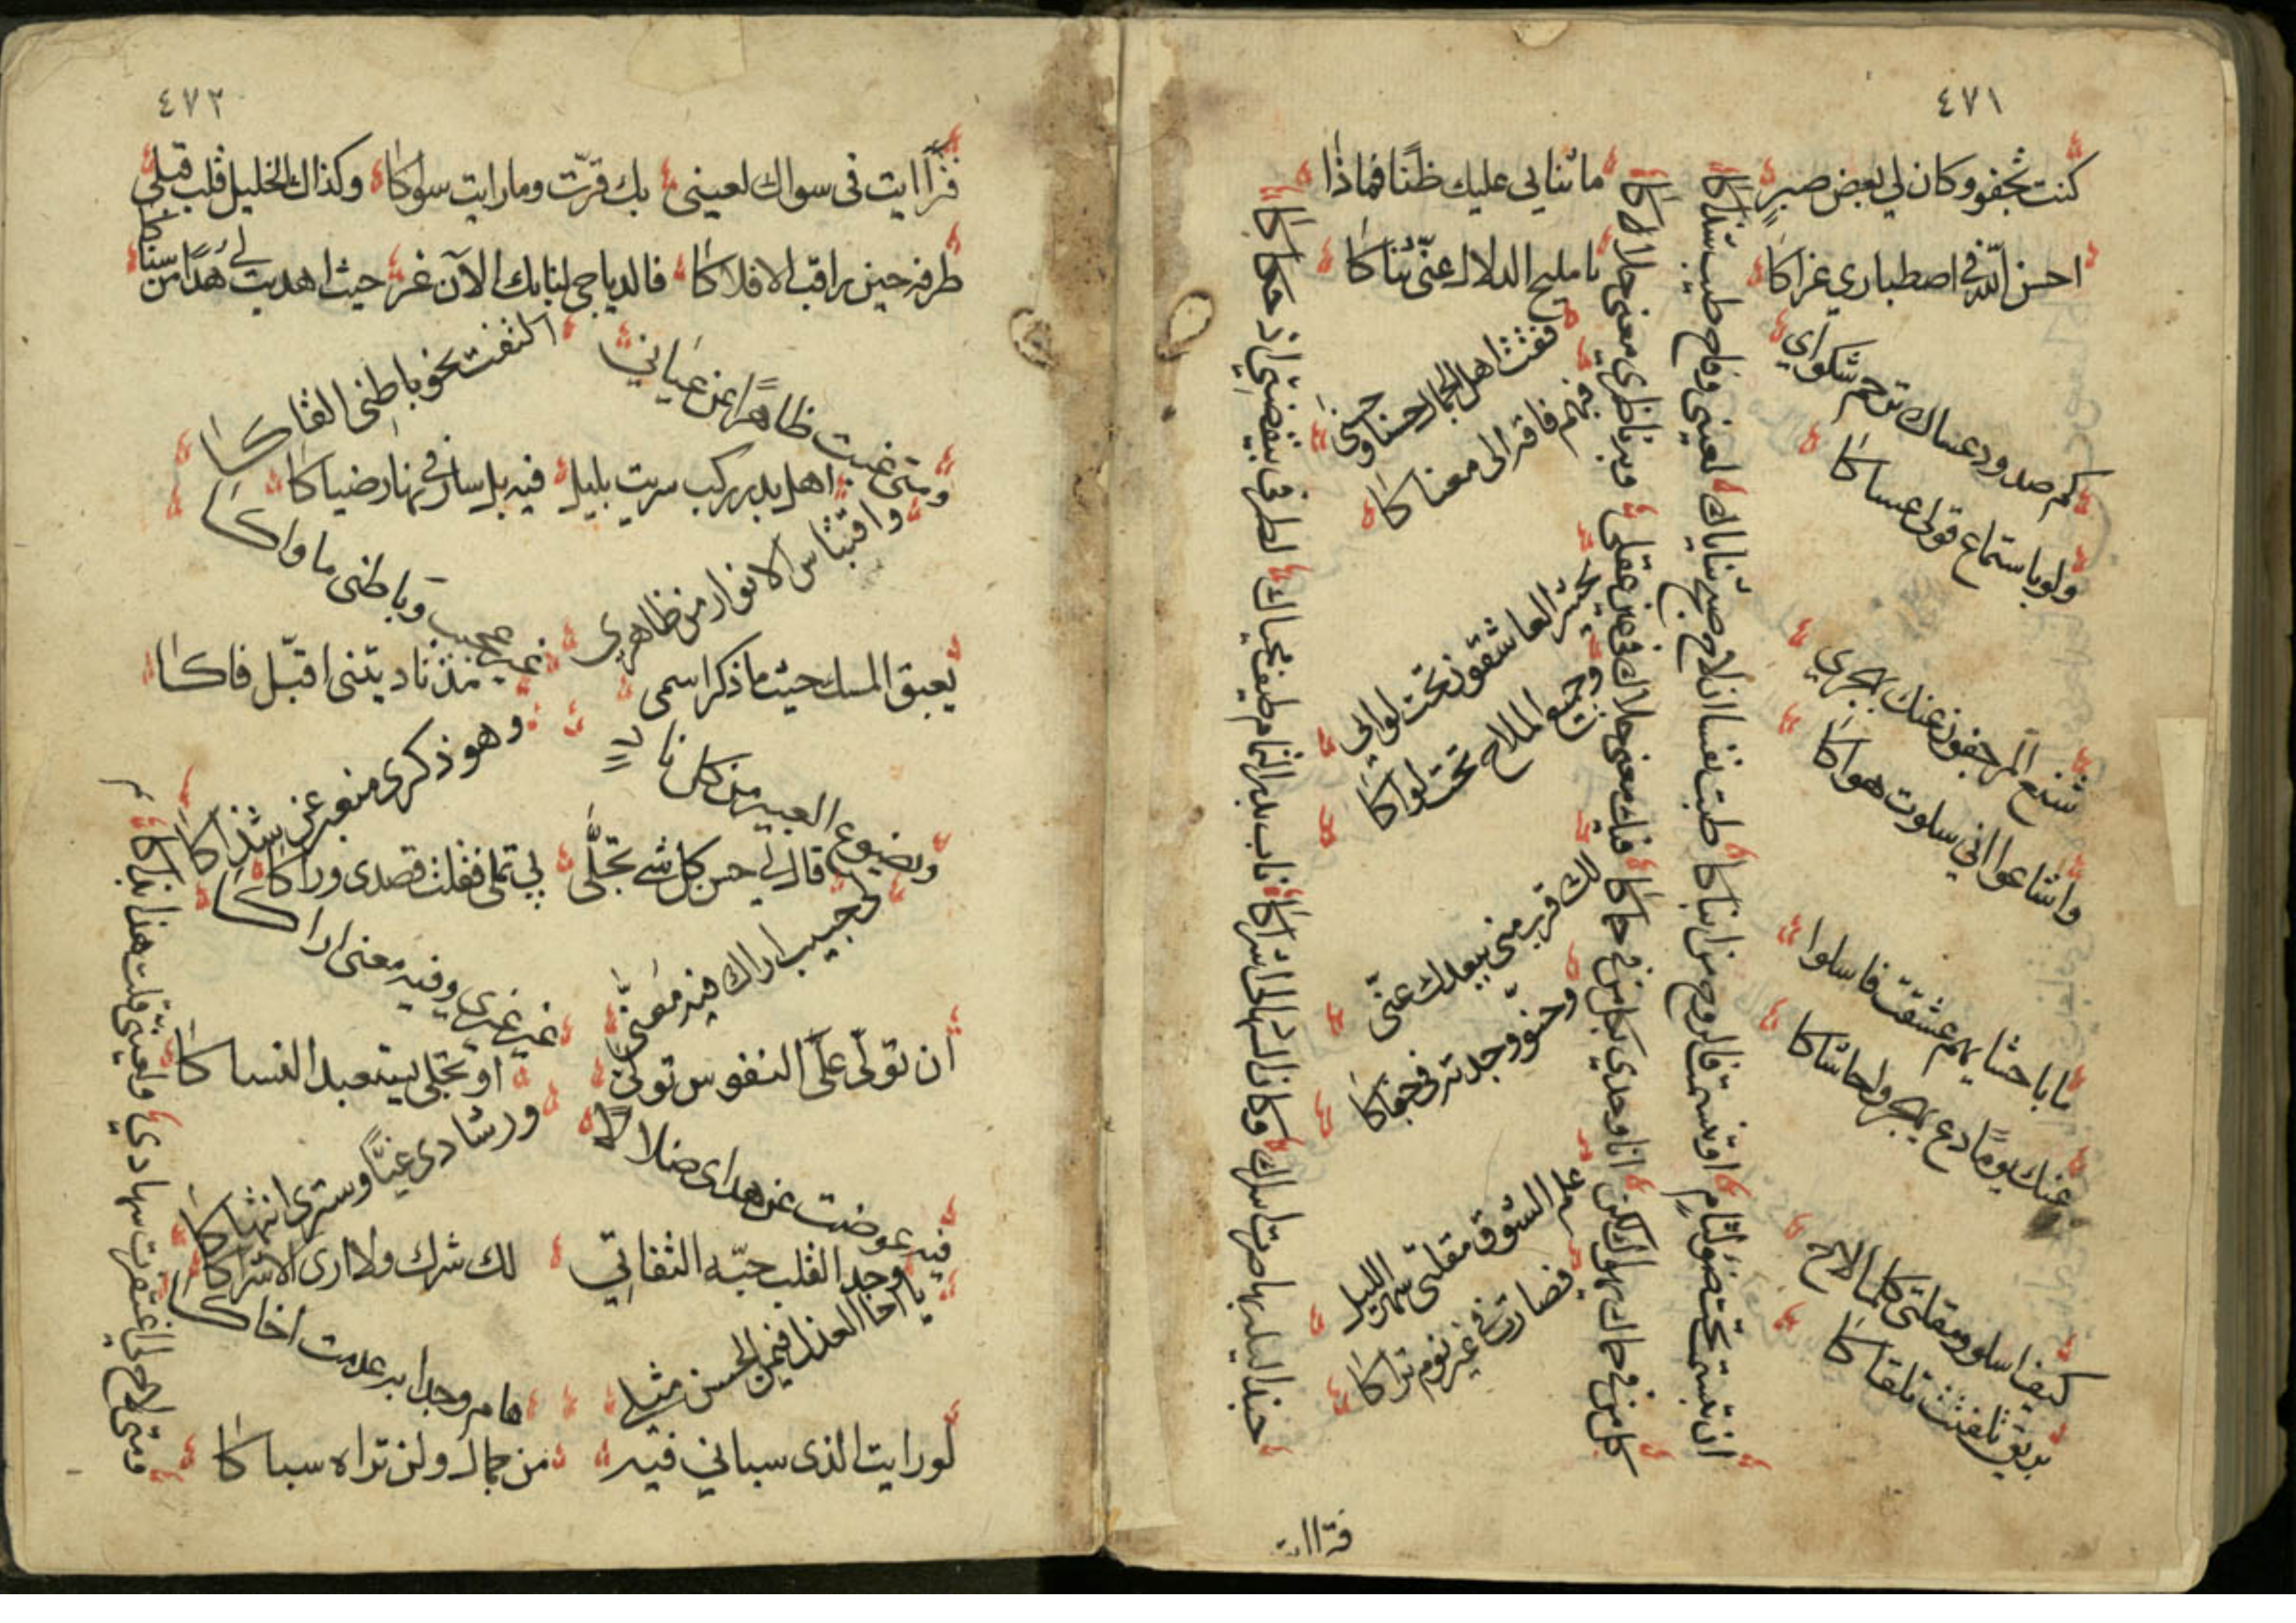 ٤٧١
كنت تجفو وكان لي بعض صبر
احسن الله في اصطباري عزاكا
كم صدود عساك ترحم شكواي
ولو باستماع قولي عساكا
شنع المرجفون عنك بهجري
واشاعوا اني سلوت هواكا
ما باحشايهم عشقت فاسلوا
عنك يوما دع يهجرو لحاشاكا
كيف اسلو ومقلتي كلما لاح
بريق تلفتت تلقاكا
ان تبسمت تحت ضوء لثام
او تنسمت الروح من انباكا
طبت نفسا اذ لاح صبح ثناياك
لعيني وفاح طيب شذاكا
كل من في حماك يهواك لكن
انا وحدي بكل من في حماكا
فيك معنى حلاك في عين عقلي
وبه ناظري معنى حلاكا
ما ثنابي عليك ظنا فماذا
يا مليح الدلال عني ثناكا
فقت اهل الجمال حسنا وحسنى
فبهم فاقة الى معناكا
يحشر العاشقون تحت لوايي
وجميع الملاح تحت لواكا
لك قرب مني ببعدك عني
وحنو وجدته في جفاكا
علم الشوق مقلتي سهر الليل
فصارت في غير نوم تراكا
حبذا ليلة بها صدت اسراك
وكان السهاد لي اشراكا
ناب بدر التمام طيف محياك
لطرفي بيقظتي اذ حكاكا
فتراايت
٤٧٢
فتراايت في سواك لعيني
بك قرت وما رايت سواكا
وكذاك الخليل قلب قبلي
طرفه حين راقب الافلاكا
فالدياجي لنا بك الآن غر
حيث اهديت لي هدا من سناكا
ومتى غبت ظاهرا عن عياني
التفت نحو باطني القاكا
اهل بدر ركب سريت بليل
فيه بل سار في نهار ضياكا
واقتباس الانوار من ظاهري
غير عجيب وباطني ماواكا
يعبق المسك حيثما ذكر اسمي
منذ ناديتني اقبل فاكا
ويضوع العبير من كل ناد
وهو ذكري معبر عن شذاكا
قال لي حسن كل شي تجلى
بي تملى فقلت قصدي وراكا
لي حبيب اراك فيه معنى
غر غيري وفيه معنى اراكا
ان تولى على النفوس تولى
او تجلى يستعبد النساكا
فيه عوضت عن هداي ضلالا
ورشادي غيا وستري انتهاكا
وحد القلب حبه التفاتي
لك شرك ولا ارى الاشراكا
يا اخا العذل فيمن الحسن مثلي
هام وجدا به عدمت اخاكا
لو رايت الذي سباني فيه
من جمال ولن تراه سباكا
ومتى لاح لي اغتفرت سهادي
ولعيني قلت هذا بذاكا